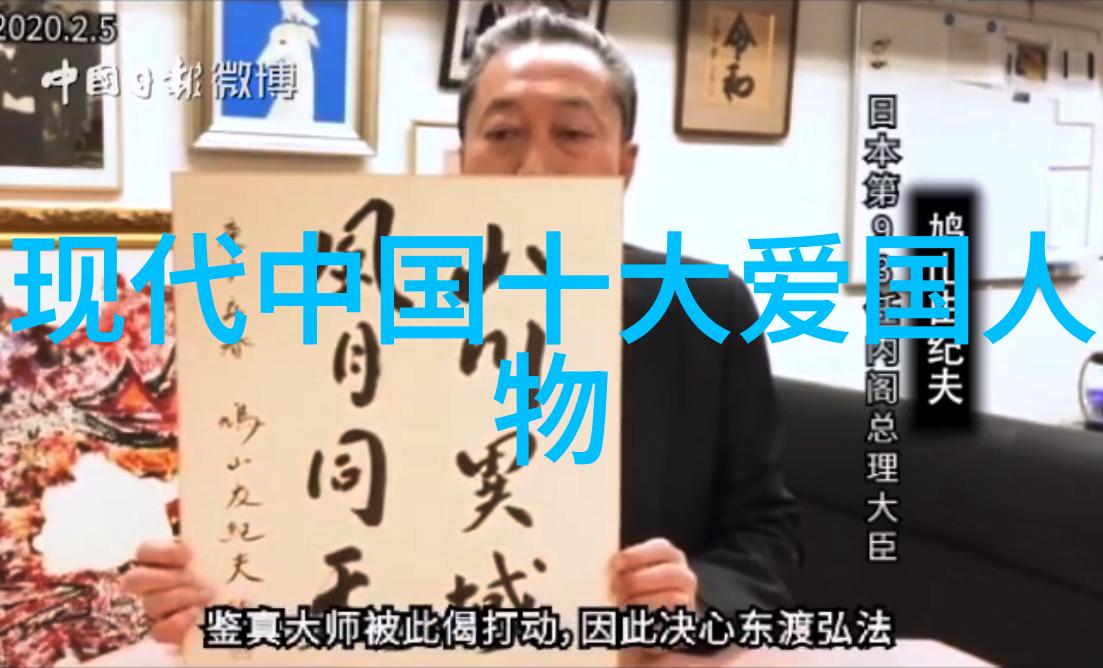 2020.2.5
中國日報微博
令和
现代中国十大爱国人
物
山川異域
風月同天
鳩山友紀夫
日本第93任内阁总理大臣
鸠山由纪夫
鉴真大师被此偈打动,因此决心东渡弘法